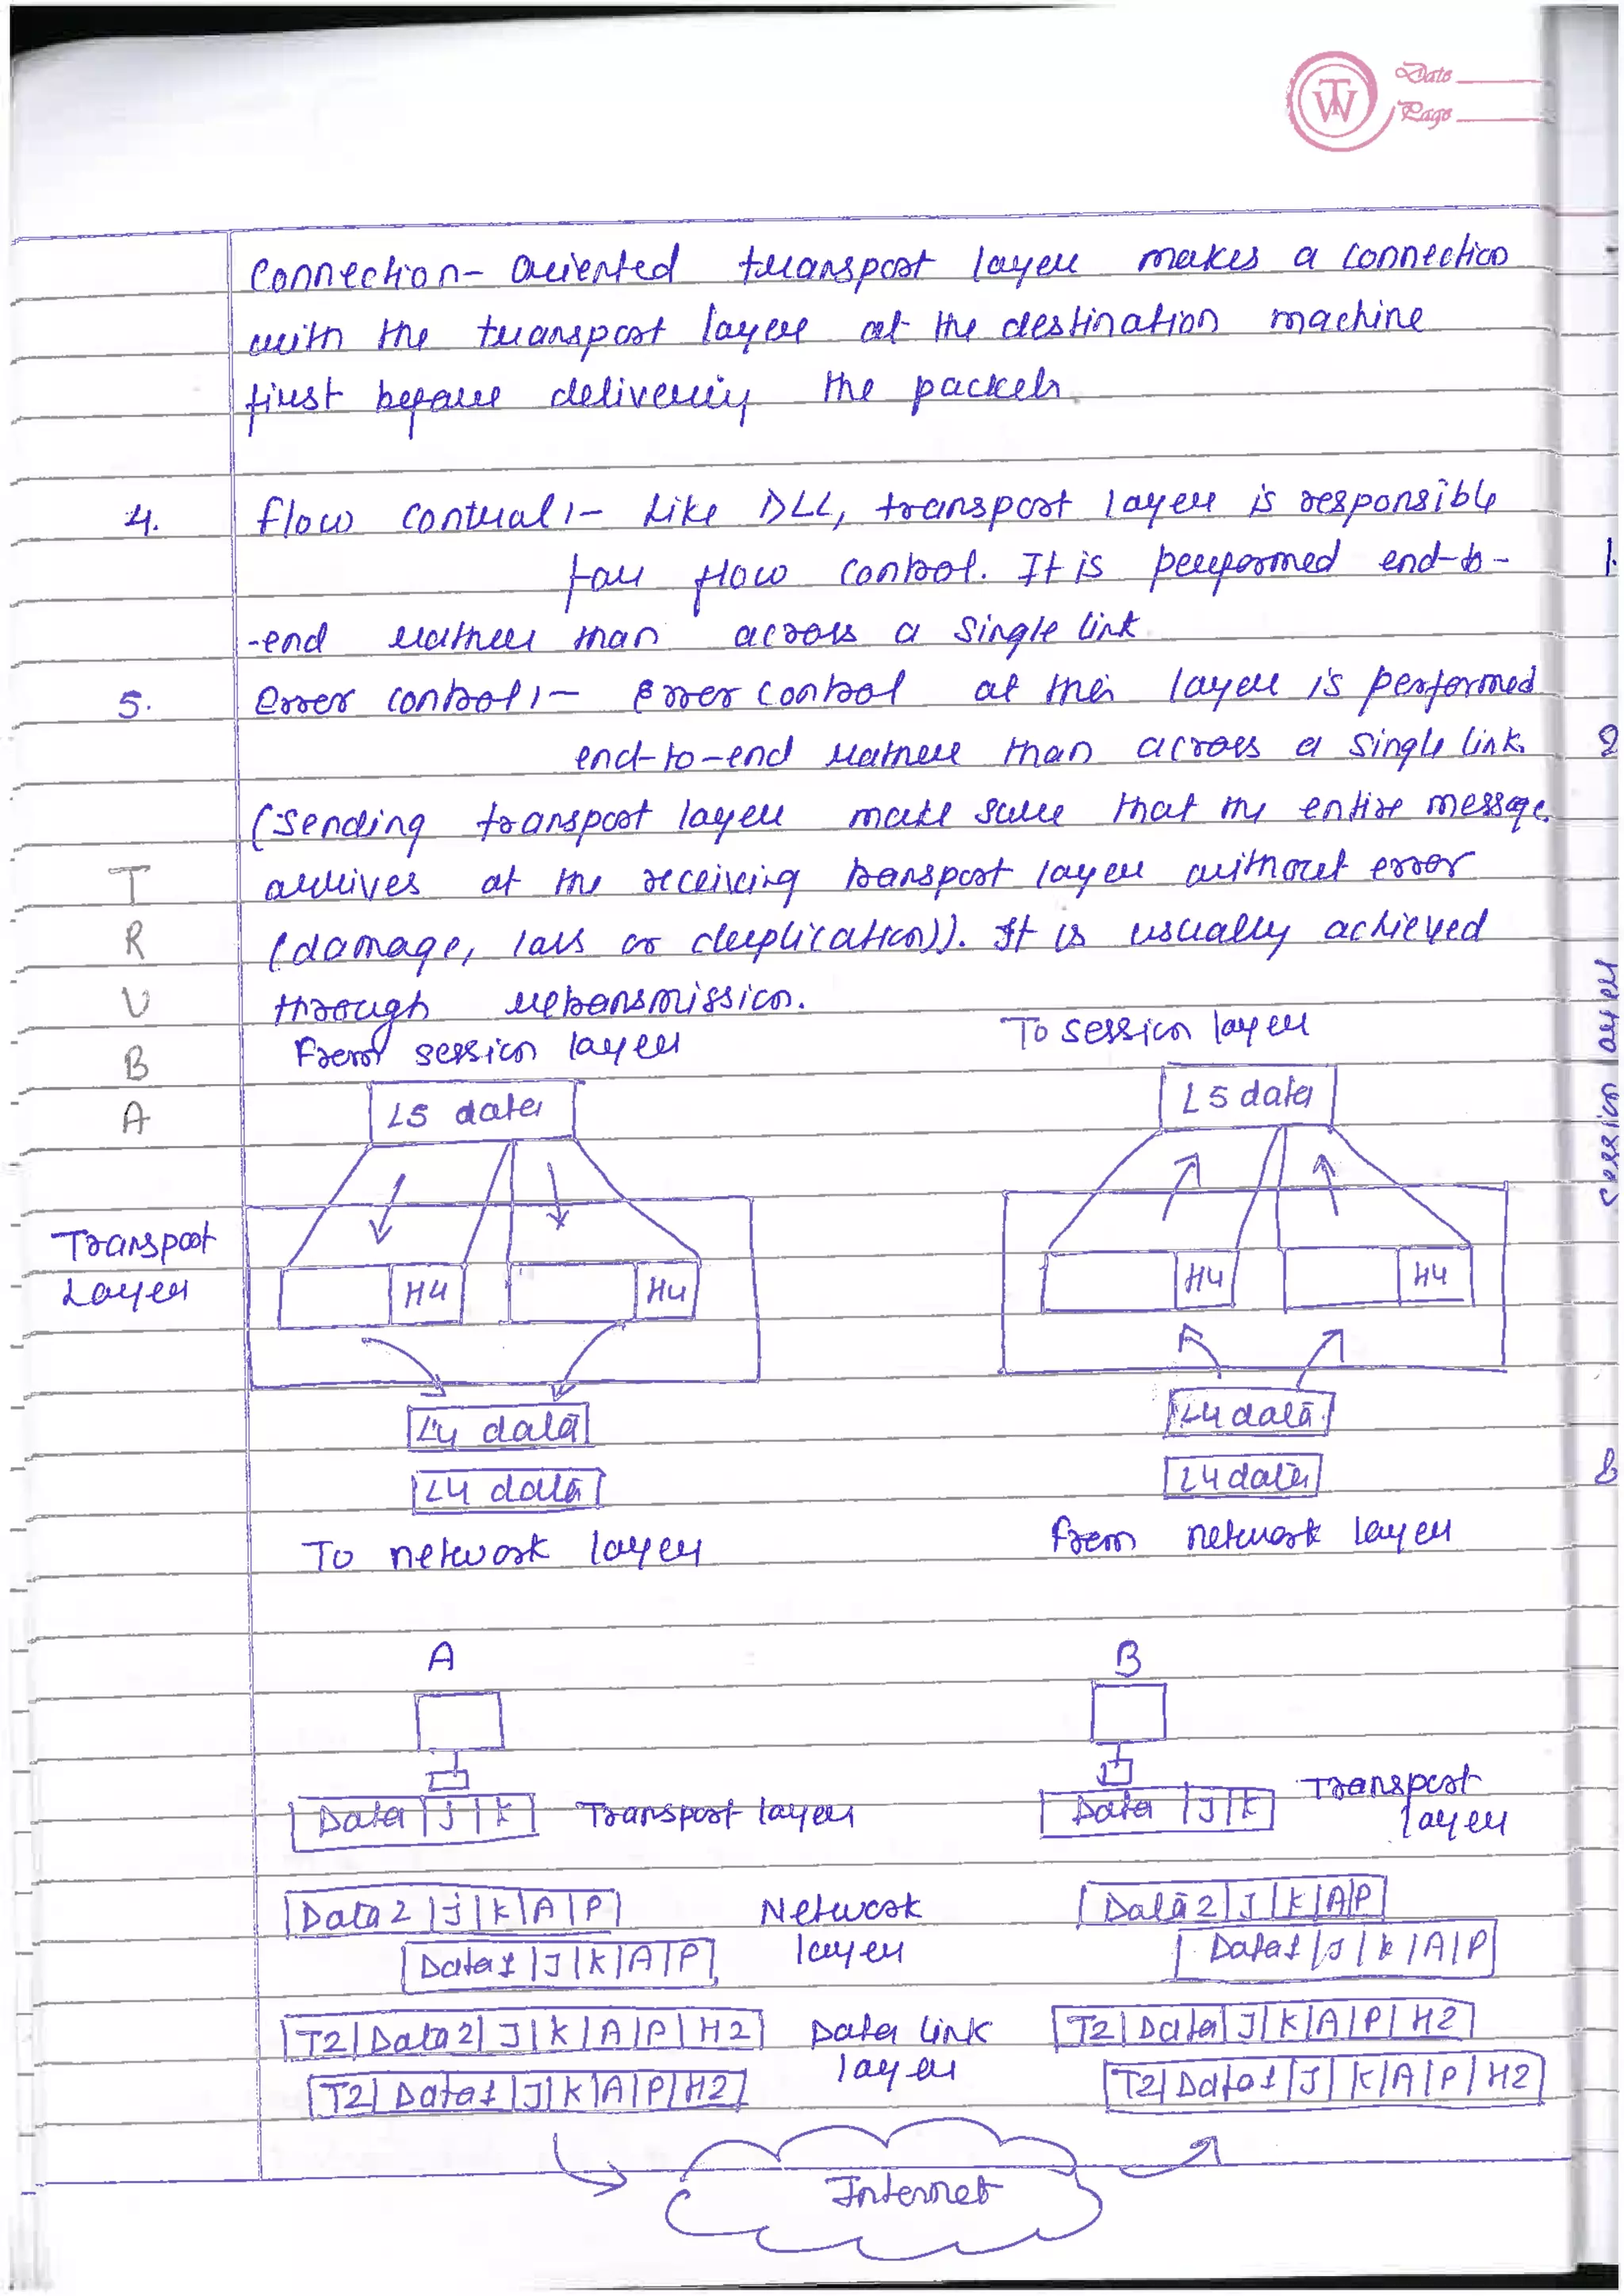 TW
Date
Page
Connection-oriented transport layer makes a connection
with the transport layer at the destination machine
first before delivering the packets.
4. Flow control:- Like DLL, transport layer is responsible
for flow control. It is performed end-to-
-end rather than across a single link.
5. Error control:- Error control at this layer is performed
end-to-end rather than across a single link.
(Sending transport layer make sure that the entire message
arrives at the receiving transport layer without error
(damage, loss or duplication)). It is usually achieved
through retransmission.
T
R
U
B
A
From session layer
To session layer
L5 data
L5 data
Transport
Layer
H4
H4
H4
H4
L4 data
L4 data
L4 data
L4 data
To network layer
From network layer
A
B
Data J K
Transport layer
Data J K
Transport
layer
Data 2 J K A P
Network
layer
Data 2 J K A P
Data 1 J K A P
Data 1 J K A P
T2 Data 2 J K A P H2
Data link
layer
T2 Data J K A P H2
T2 Data 1 J K A P H2
T2 Data 1 J K A P H2
Internet
1.
2
Session layer